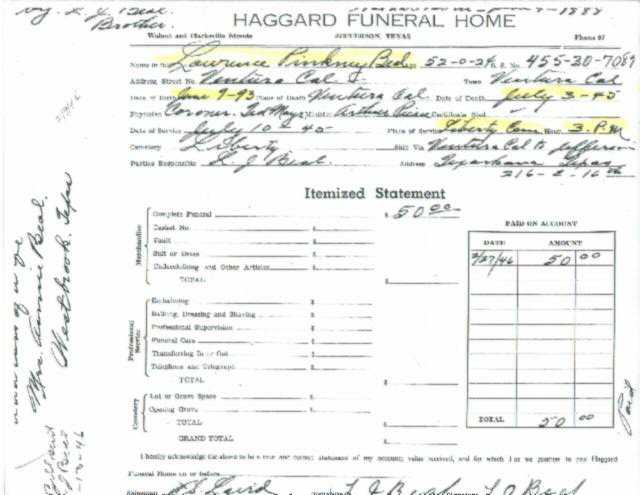 By L. J. Beal
Brother
HAGGARD FUNERAL HOME
Walnut and Clarksville Streets JEFFERSON, TEXAS Phone 97
Name in Full Lawrence Pinkney Beal Age 52-0-24 S. S. No. 455-20-7089
Address Street No. Ventura Cal. Town Ventura Cal
Date of Birth June 9-93 Place of Death Ventura Cal. Date of Death July 3-45
Physician Coroner. Ted Mayr Minister Arthur Certificate filed
Date of Service July 10th 45 Place of Service Liberty Cem. Hour 3. P.M
Cemetery Liberty Ship Via Ventura Cal to Jefferson
Parties Responsible L J Beal Address Texarkana Texas
216-E-16th
Itemized Statement
Merchandise
Complete Funeral $ 50 00
Casket No. $
Vault $
Suit or Dress $
Underclothing and Other Articles $
TOTAL $
PAID ON ACCOUNT
DATE AMOUNT
2/27/46 50 00
TOTAL 50 00
Professional Service
Embalming $
Bathing, Dressing and Shaving $
Professional Supervision $
Funeral Cars $
Transferring In or Out $
Telephone and Telegraph $
TOTAL $
Cemetery
Lot or Grave Space $
Opening Grave $
TOTAL $
GRAND TOTAL $
I hereby acknowledge the above to be a true and correct statement of my account; value received, and for which I or we promise to pay Haggard
Funeral Home on or before
L J Beal
Mrs Fannie Beal
Westbrook, Texas
Paid